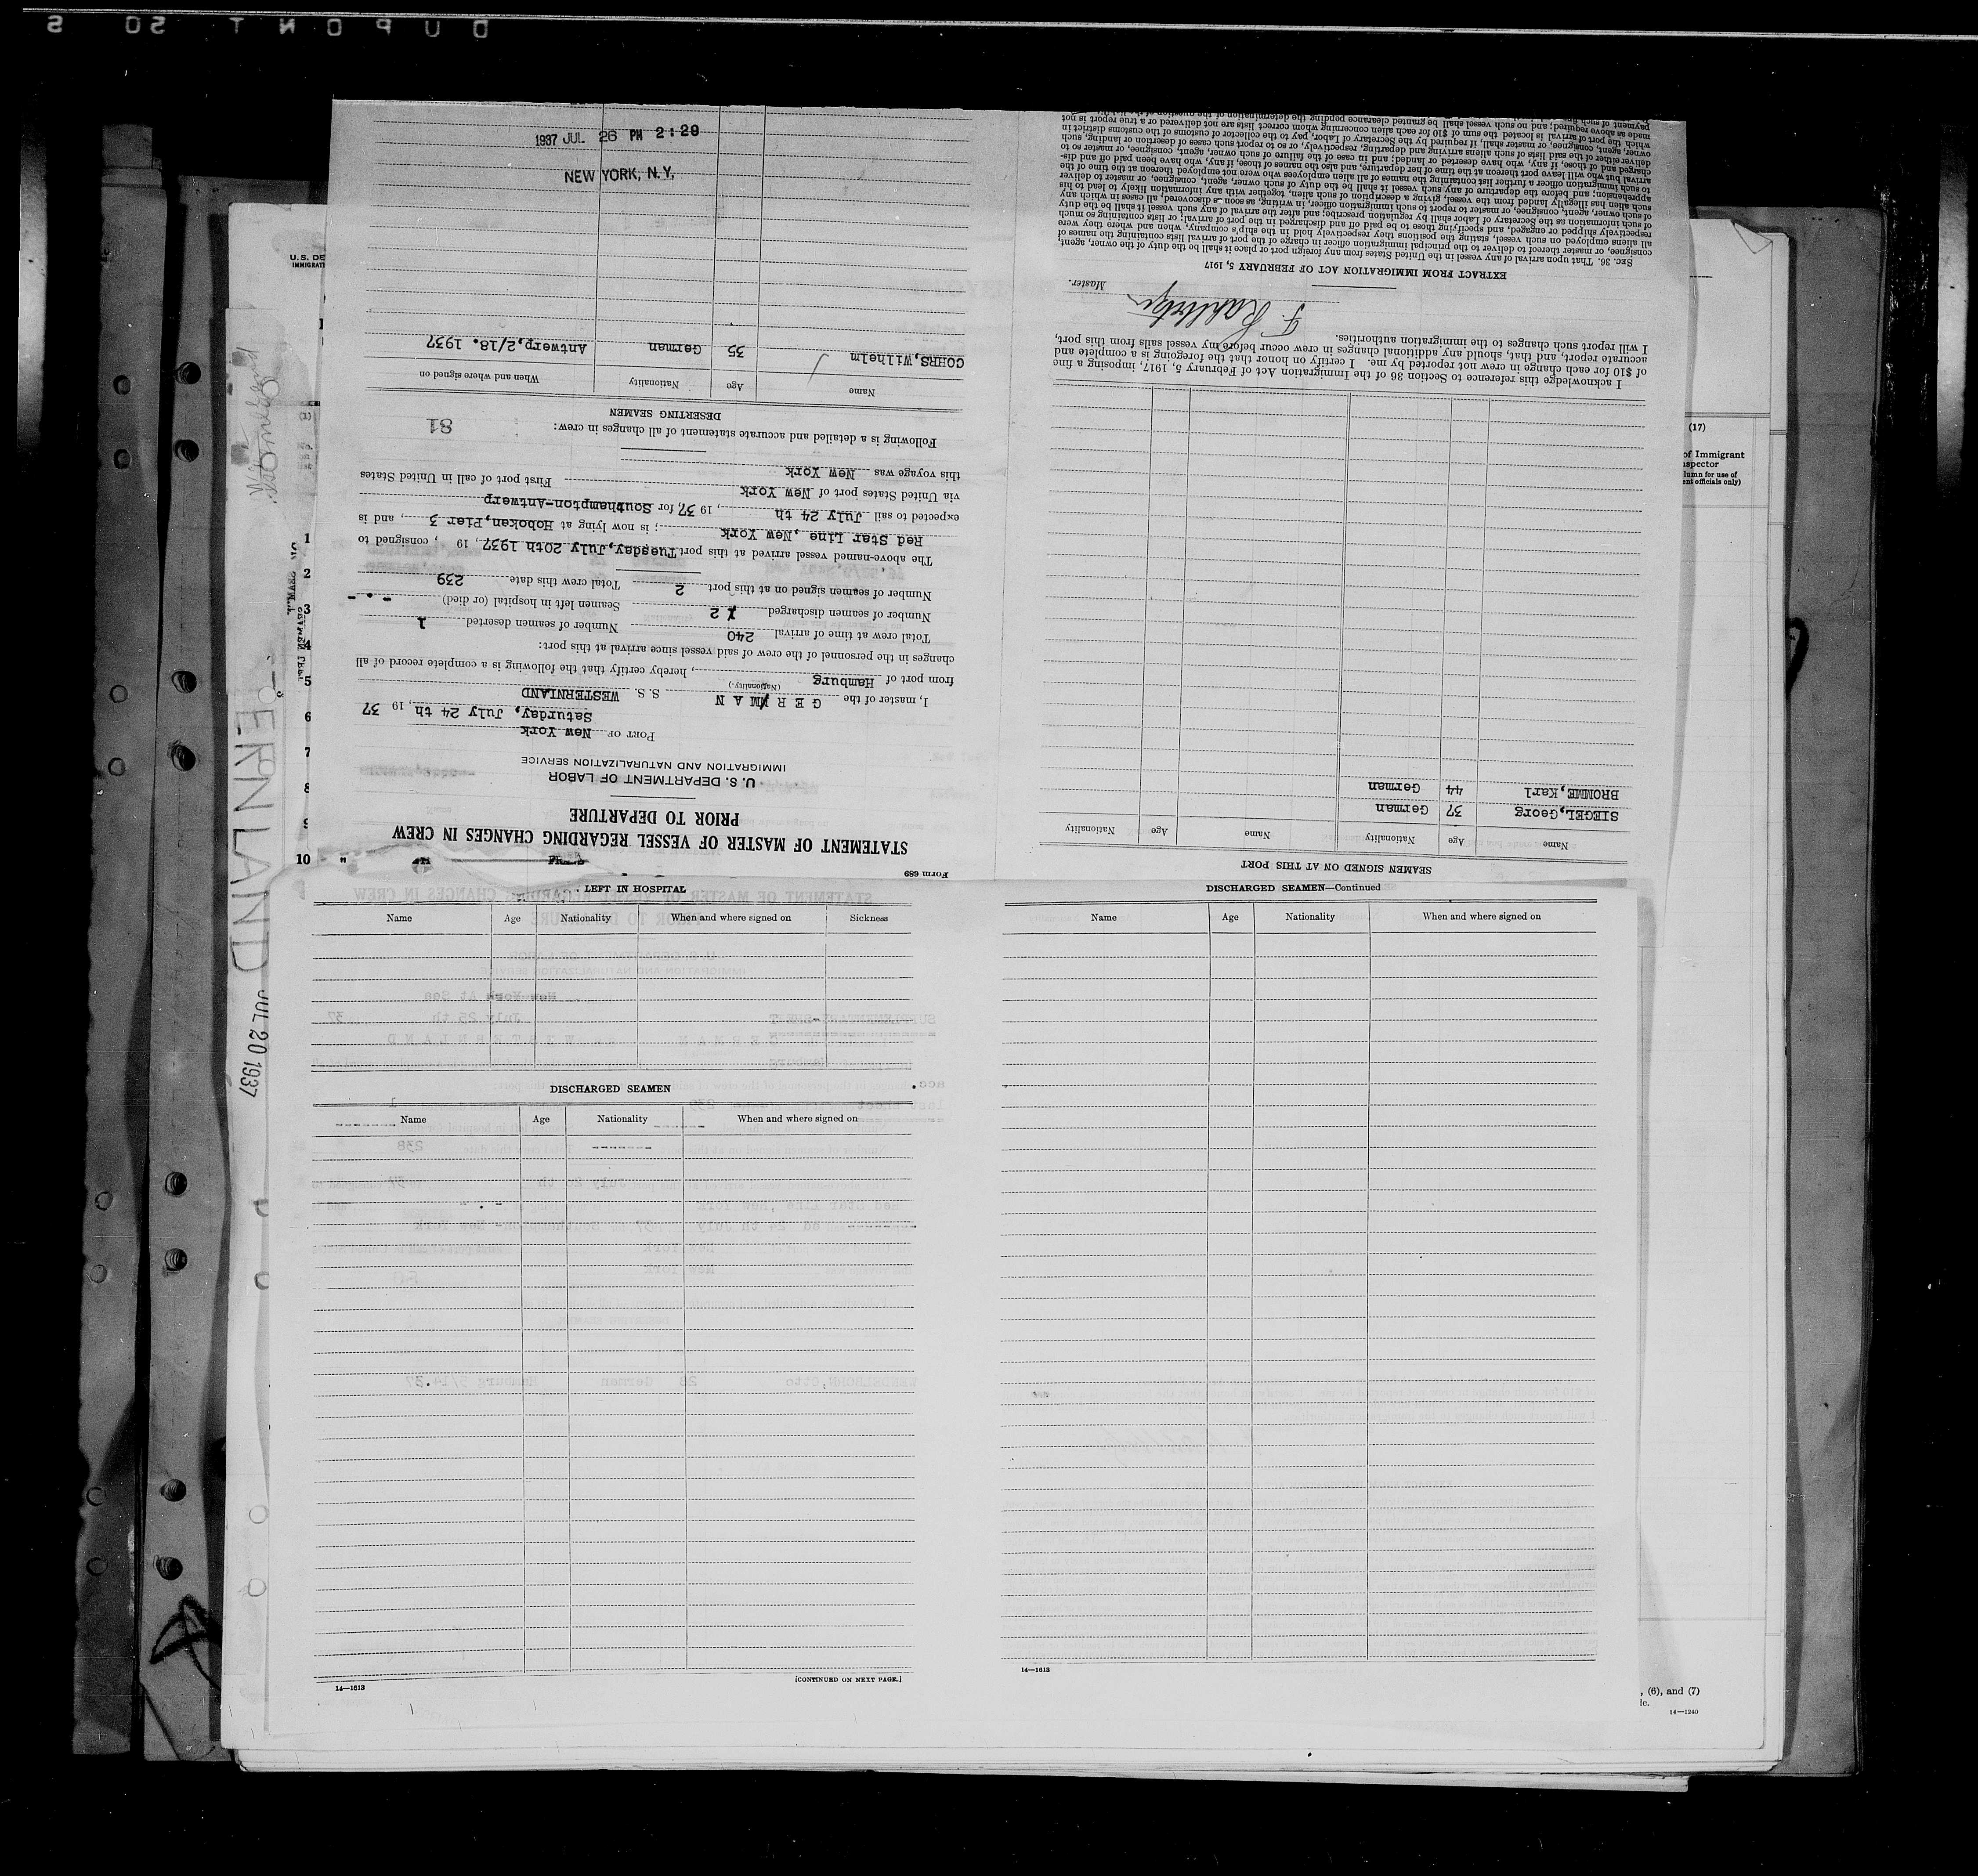 DUPONT S0 S
1937 JUL 26 PM 2:29
NEW YORK, N.Y.
Form 689
STATEMENT OF MASTER OF VESSEL REGARDING CHANGES IN CREW
PRIOR TO DEPARTURE
U. S. DEPARTMENT OF LABOR
IMMIGRATION AND NATURALIZATION SERVICE
PORT OF New York
Saturday, July 24 th, 19 37
I, master of the GERMAN S. S. WESTERNLAND
(Nationality.)
from port of Hamburg, hereby certify that the following is a complete record of all
changes in the personnel of the crew of said vessel since arrival at this port:
Total crew at time of arrival 240 Number of seamen deserted 1
Number of seamen discharged 2 Seamen left in hospital (or died) -.-
Number of seamen signed on at this port 2 Total crew this date 239
The above-named vessel arrived at this port Tuesday,July 20th 1937, 19 , consigned to
Red Star Line ,New York; is now lying at Hoboken,Pier 3, and is
expected to sail July 24 th, 19 37, for Southampton-Antwerp
via United States port of New York First port of call in United States
this voyage was New York
Following is a detailed and accurate statement of all changes in crew:
81
DESERTING SEAMEN
Name Age Nationality When and where signed on
COHRS,Wilhelm 35 German Antwerp,2/18. 1937
SEAMEN SIGNED ON AT THIS PORT
Name Age Nationality Name Age Nationality
SIEGEL,Georg 37 German
BROMME,Karl 44 German
I acknowledge this reference to Section 36 of the Immigration Act of February 5, 1917, imposing a fine
of $10 for each change in crew not reported by me. I certify on honor that the foregoing is a complete and
accurate report, and that, should any additional changes in crew occur before my vessel sails from this port,
I will report such changes to the immigration authorities.
Master.
EXTRACT FROM IMMIGRATION ACT OF FEBRUARY 5, 1917
SEC. 36. That upon arrival of any vessel in the United States from any foreign port or place it shall be the duty of the owner, agent,
consignee, or master thereof to deliver to the principal immigration officer in charge of the port of arrival lists containing the names of
all aliens employed on such vessel, stating the positions they respectively hold in the ship's company, when and where they were
respectively shipped or engaged, and specifying those to be paid off and discharged in the port of arrival; or lists containing so much
of such information as the Secretary of Labor shall by regulation prescribe; and after the arrival of any such vessel it shall be the duty
of such owner, agent, consignee, or master to report to such immigration officer, in writing, as soon as discovered, all cases in which any
such alien has illegally landed from the vessel, giving a description of such alien, together with any information likely to lead to his
apprehension; and before the departure of any such vessel it shall be the duty of such owner, agent, consignee, or master to deliver
to such immigration officer a further list containing the names of all alien employees who were not employed thereon at the time of the
arrival but who will leave port thereon at the time of her departure, and also the names of those, if any, who have been paid off and dis-
charged and of those, if any, who have deserted or landed; and in case of the failure of such owner, agent, consignee, or master so to
deliver either of the said lists of such aliens arriving and departing, respectively, or so to report such cases of desertion or landing, such
owner, agent, consignee, or master shall, if required by the Secretary of Labor, pay to the collector of customs of the customs district in
which the port of arrival is located the sum of $10 for each alien concerning whom correct lists are not delivered or a true report is not
made as above required; and no such vessel shall be granted clearance pending the determination of the question of the liability to the
U.S. DE
IMMIGRATI
(17)
of Immigrant
nspector
lumn for use of
ent officials only)
1
2
3
4
5
6
7
8
9
10 "
ERNLAND JUL 20 1937
LEFT IN HOSPITAL
Name Age Nationality When and where signed on Sickness
DISCHARGED SEAMEN
Name Age Nationality When and where signed on
[CONTINUED ON NEXT PAGE.]
14—1613
DISCHARGED SEAMEN—Continued
Name Age Nationality When and where signed on
14—1613
, (6), and (7)
le.
14—1240